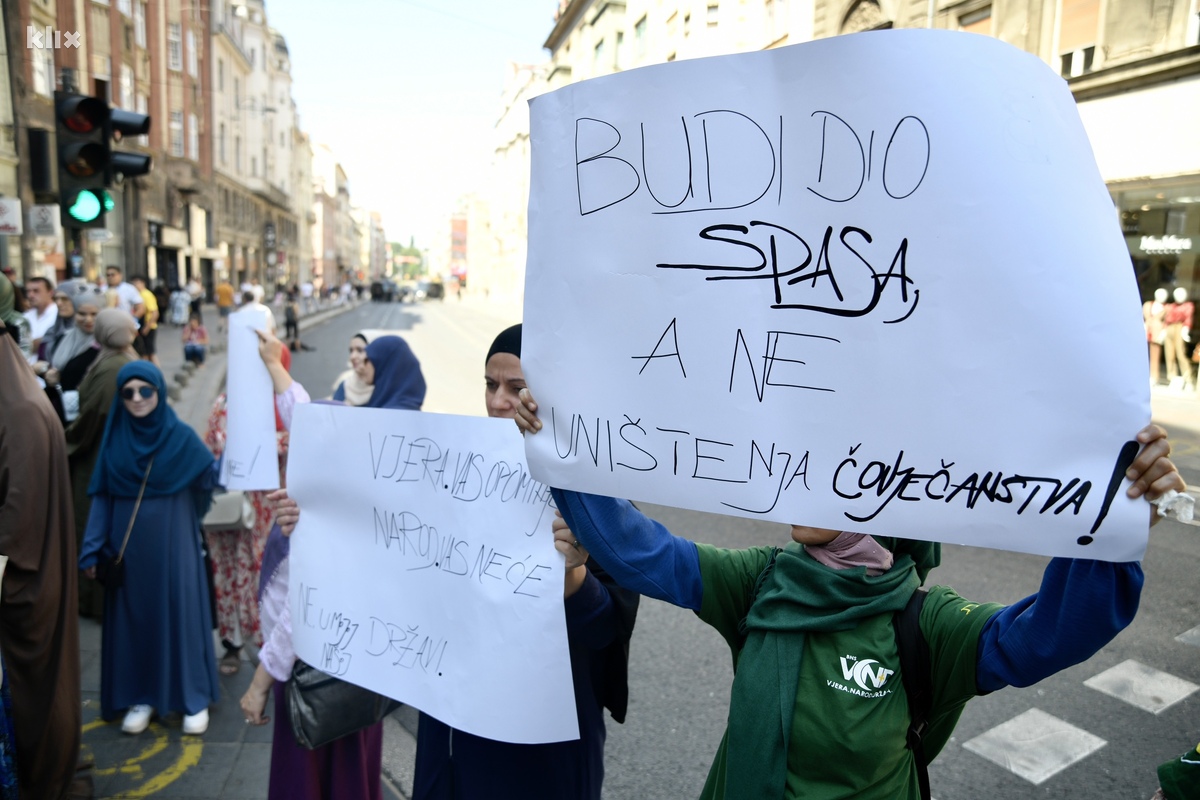 klix
BUDI DIO
SPASA,
A NE
UNIŠTENJA ČOVJEČANSTVA!
VJERA.VAS OPOMINJE
NAROD.VAS NEĆE
NE U
NAŠOJ
DRŽAVI!
E!
BNS
VJERA.NAROD.DRŽAVA
MaxMara